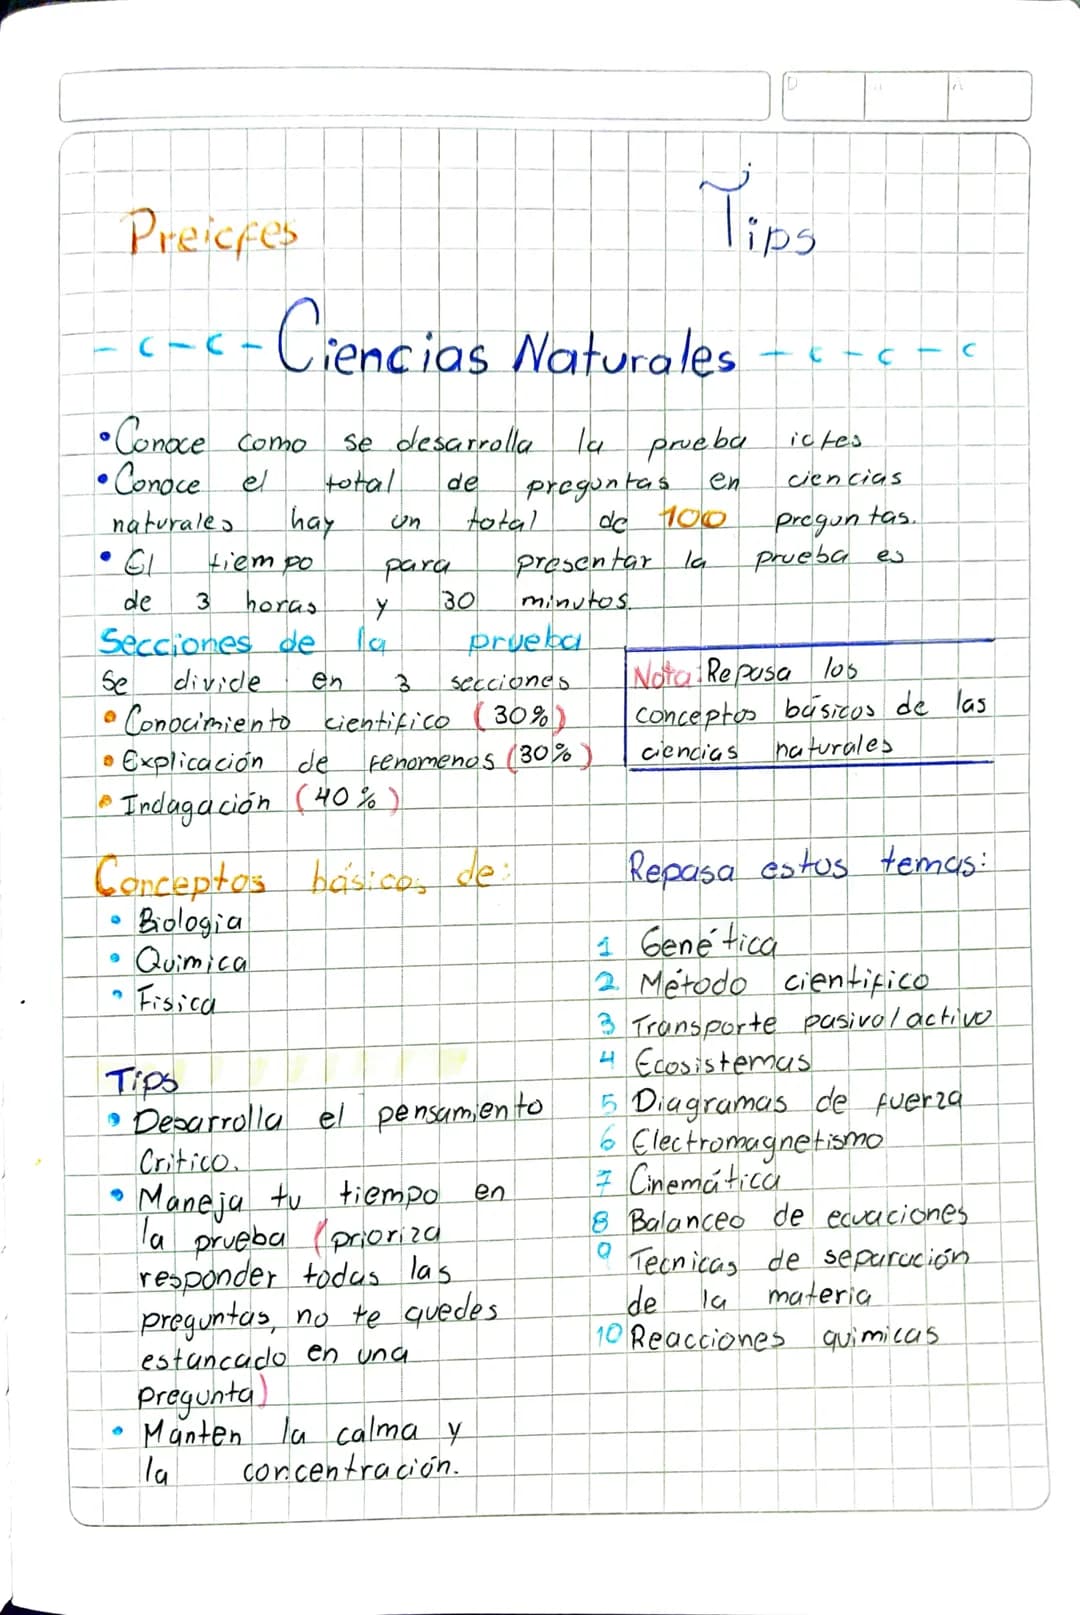 Preicfes
Tips
Ciencias Naturales
• Conoce como se desarrolla la prueba icfes
• Conoce el total de preguntas en ciencias
naturales hay un total de 100 preguntas.
• El tiempo para presentar la prueba es
de 3 horas y 30 minutos.
Secciones de la prueba
Se divide en 3 secciones
• Conocimiento cientifico (30%)
• Explicación de fenomenos (30%)
• Indagación (40%)
Nota: Repasa los
conceptos básicos de las
ciencias naturales
Conceptos básicos de:
• Biologia
• Quimica
• Fisica
Tips
• Desarrolla el pensamiento
Critico.
• Maneja tu tiempo en
la prueba (prioriza
responder todas las
preguntas, no te quedes
estancado en una
pregunta)
• Manten la calma y
la concentración.
Repasa estos temas:
1 Genética
2 Método cientifico
3 Transporte pasivo/activo
4 Ecosistemas
5 Diagramas de fuerza
6 Electromagnetismo
7 Cinemática
8 Balanceo de ecuaciones
9 Tecnicas de separación
de la materia
10 Reacciones quimicas